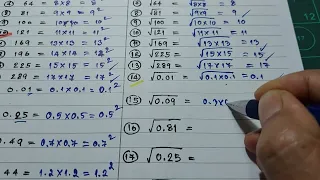 64 = 8×8 = 8²
81 = 9×9 = 9²
100 = 10×10 = 10²
121 = 11×11 = 11²
169 = 13×13 = 13²
196 = 14×14 = 14²
225 = 15×15 = 15²
289 = 17×17 = 17²
0.01 = 0.1×0.1 = 0.1²
0.09
0.25 = 0.5×0.5 = 0.5²
0.49 = 0.7×0.7 = 0.7²
1.44 = 1.2×1.2 = 1.2²
√64 = √8×8 = 8
√81 = √9×9 = 9
√100 = √10×10 = 10
√121 = √11×11 = 11
√169 = √13×13 = 13
√225 = √15×15 = 15
√289 = √17×17 = 17
⑭ √0.01 = √0.1×0.1 = 0.1
⑮ √0.09 =
⑯ √0.81 =
⑰ √0.25 =